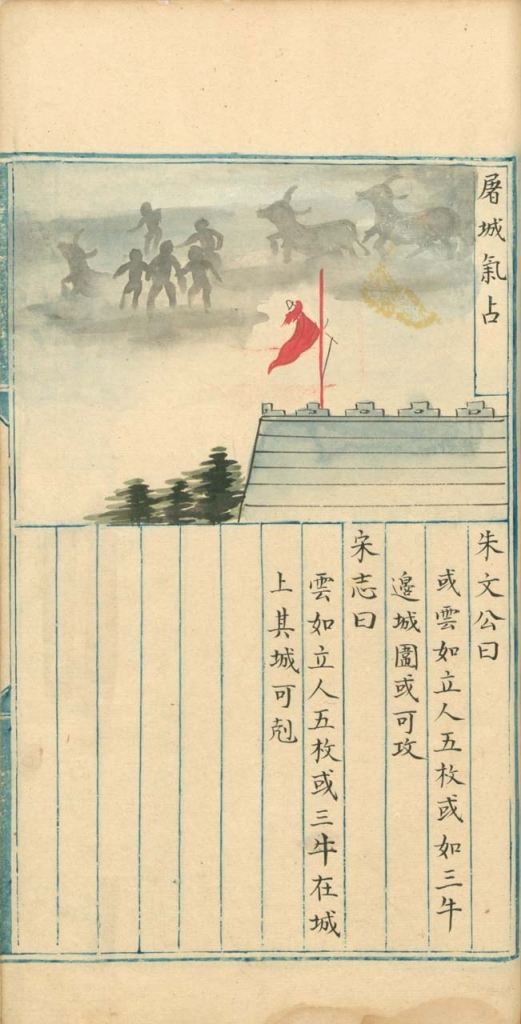 屠城氣占
朱文公曰
或雲如立人五枚或如三牛
邊城圍或可攻
宋志曰
雲如立人五枚或三牛在城
上其城可剋